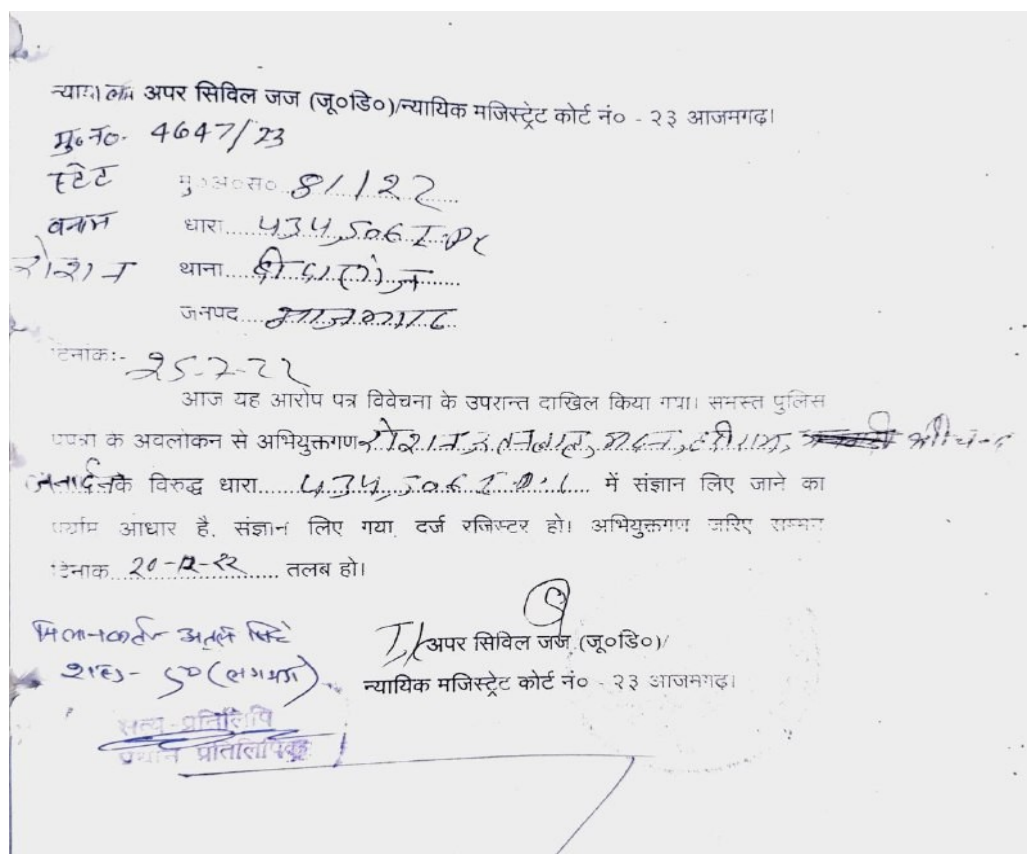 न्यायालय अपर सिविल जज (जू०डि०)/न्यायिक मजिस्ट्रेट कोर्ट नं० - २३ आजमगढ़।
मु०नं०- 4647/23
स्टेट मु०अ०स० 81/22
बनाम धारा 434,506 I.P.C
रोशन थाना
जनपद आजमगढ़
दिनांक:- 25-7-22
आज यह आरोप पत्र विवेचना के उपरान्त दाखिल किया गया। समस्त पुलिस
प्रपत्रों के अवलोकन से अभियुक्तगण रोशन, रतनलाल, मदन, हरीराम,
जनार्दन के विरुद्ध धारा 434, 506 I.P.C में संज्ञान लिए जाने का
पर्याप्त आधार है, संज्ञान लिए गया, दर्ज रजिस्टर हो। अभियुक्तगण जरिए सम्मन
दिनांक 20-12-22 तलब हो।
मिलानकर्ता- अतुल सिंह
शब्द- 50 (लगभग)
अपर सिविल जज (जू०डि०)/
न्यायिक मजिस्ट्रेट कोर्ट नं० - २३ आजमगढ़।
सत्य-प्रतिलिपि
प्रधान प्रतिलिपिक